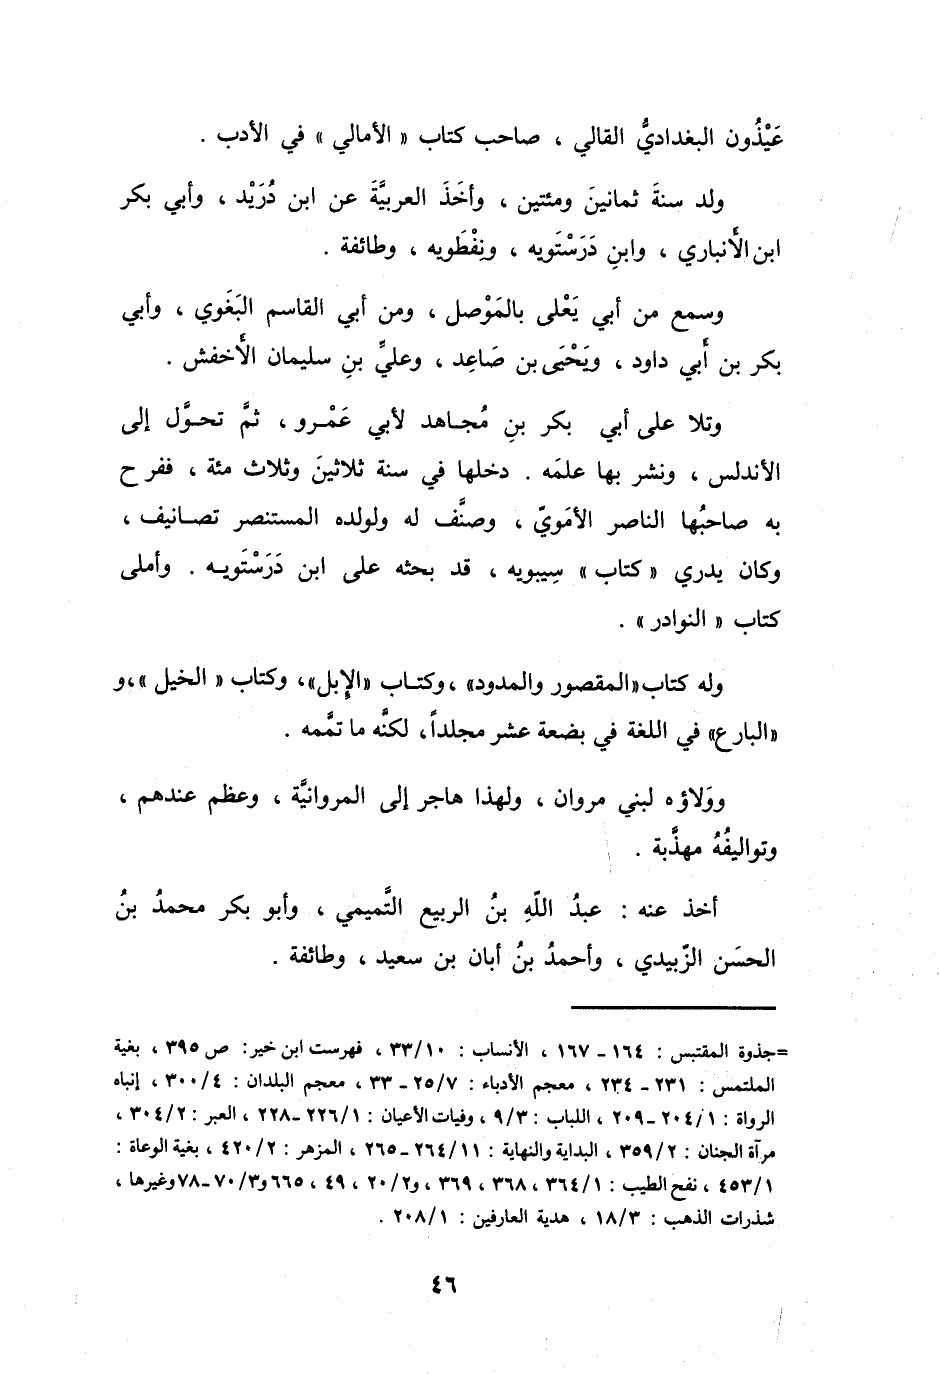 عَيْذُون البغداديُّ القالي ، صاحب كتاب « الأمالي » في الأدب .
ولد سنةَ ثمانينَ ومئتين ، وأخَذَ العربيَّةَ عن ابن دُرَيْد ، وأبي بكر
ابن الأَنباري ، وابنِ دَرَسْتَويه ، ونِفْطَويه ، وطائفة .
وسمع من أبي يَعْلى بالمَوْصل ، ومن أبي القاسم البَغَوي ، وأبي
بكر بن أَبي داود ، ويَحْيَى بن صَاعِد ، وعليِّ بنِ سليمان الأَخفش .
وتلا على أبي بكر بنِ مُجـاهد لأبي عَمْـرو ، ثمَّ تحـوَّل إلى
الأندلس ، ونشر بها علمَه . دخلها في سنة ثلاثينَ وثلاث مئة ، ففرح
به صاحبُها الناصر الأمَويّ ، وصنَّف له ولولده المستنصر تصـانيف ،
وكان يدري « كتاب » سِيبويه ، قد بحثه على ابن دَرَسْتَويـه . وأملى
كتاب « النوادر » .
وله كتاب«المقصور والمدود» ،وكتـاب «الإِبل»، وكتاب « الخيل »،و
«البارع» في اللغة في بضعة عشر مجلداً، لكنَّه ما تمَّمه .
ووَلاؤه لبني مروان ، ولهذا هاجر إلى المروانيَّة ، وعظم عندهم ،
وتواليفُهُ مهذَّبة .
أخذ عنه : عبدُ اللّهِ بنُ الربيع التَّميمي ، وأبو بكر محمدُ بنُ
الحسَن الزّبيدي ، وأحمدُ بنُ أبان بن سعيد ، وطائفة .
=جذوة المقتبس : ١٦٤ - ١٦٧ ، الأنساب : ٣٣/١٠ ، فهرست ابن خير: ص ٣٩٥ ، بغية
الملتمس : ٢٣١ - ٢٣٤ ، معجم الأدباء : ٢٥/٧ - ٣٣ ، معجم البلدان : ٣٠٠/٤ ، إنباه
الرواة : ٢٠٤/١ - ٢٠٩ ، اللباب : ٩/٣ ، وفيات الأعيان : ٢٢٦/١ - ٢٢٨ ، العبر : ٣٠٤/٢ ،
مرآة الجنان : ٣٥٩/٢ ، البداية والنهاية : ٢٦٤/١١ - ٢٦٥ ، المزهر : ٤٢٠/٢ ، بغية الوعاة :
٤٥٣/١ ، نفح الطيب : ٣٦٤/١ ، ٣٦٨ ، ٣٦٩ ، و٢٠/٢ ، ٤٩ ، ٦٦٥ و٧٠/٣ - ٧٨ وغيرها ،
شذرات الذهب : ١٨/٣ ، هدية العارفين : ٢٠٨/١ .
٤٦